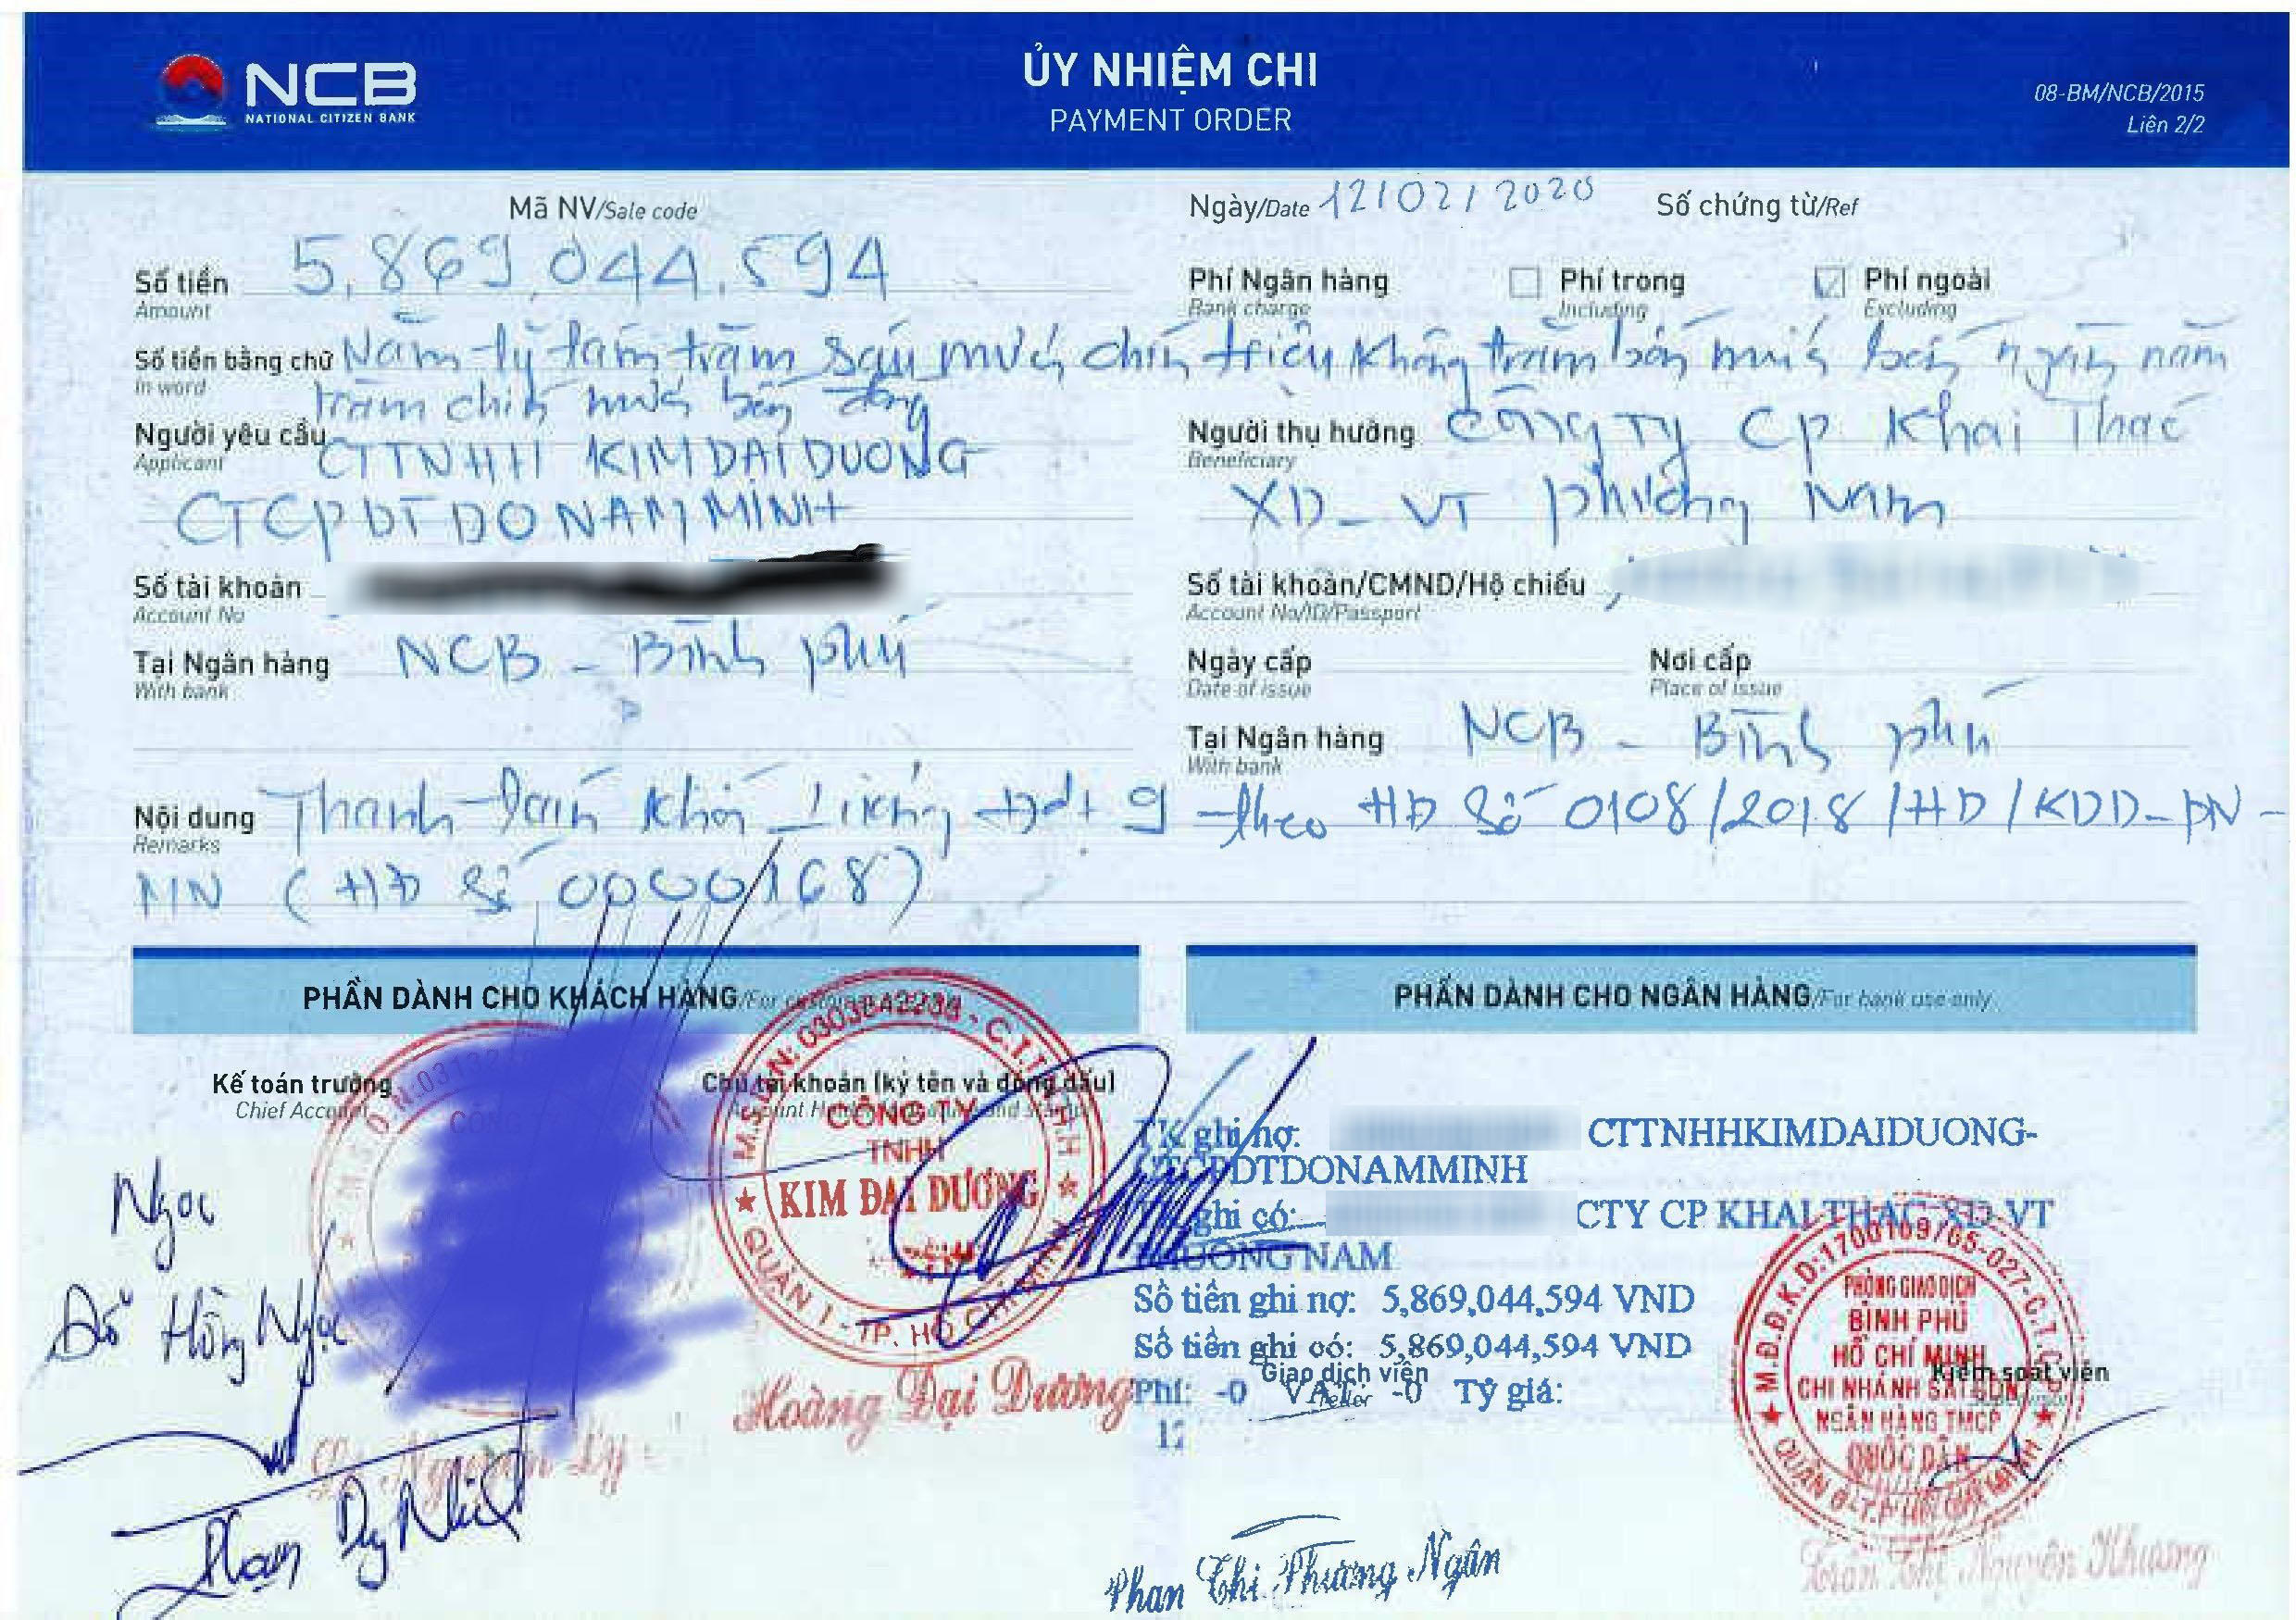 NCB
NATIONAL CITIZEN BANK
ỦY NHIỆM CHI
PAYMENT ORDER
08-BM/NCB/2015
Liên 2/2
Mã NV/Sale code
Ngày/Date 12/02/2020
Số chứng từ/Ref
Số tiền 5,869,044,594
Amount
Phí Ngân hàng Phí trong Phí ngoài
Bank charge Including Excluding
Số tiền bằng chữ Năm tỷ tám trăm sáu mươi chín triệu không trăm bốn mươi bốn ngàn năm
In word
trăm chín mươi bốn đồng
Người yêu cầu CTTNHH KIMDAIDUONG
Applicant
CTCPDTDONAMMINH
Người thụ hưởng Công Ty CP Khai Thác
Beneficiary
XD-VT Phương Nam
Số tài khoản
Account No
Số tài khoản/CMND/Hộ chiếu
Account No/ID/Passport
Tại Ngân hàng NCB - Bình Phú
With bank
Ngày cấp Nơi cấp
Date of issue Place of issue
Tại Ngân hàng NCB - Bình Phú
With bank
Nội dung Thanh toán khối lượng đợt 9 theo HĐ Số 0108/2018/HĐ/KDD-PN-
Remarks
MN (HĐ Số 0000168)
PHẦN DÀNH CHO KHÁCH HÀNG/For
PHẦN DÀNH CHO NGÂN HÀNG/For bank use only
Kế toán trưởng
Chief
Chủ tài khoản (ký tên và đóng dấu)
CÔNG TY
TNHH
KIM ĐẠI DƯƠNG
QUẬN 1 - TP. HỒ CHÍ MINH
Ngọc
Đỗ Hồng Ngọc
Hoàng Đại Dương
TK ghi nợ: CTTNHHKIMDAIDUONG-
CTCPDTDONAMMINH
ghi có: CTY CP KHAI THAC XD-VT
PHUONG NAM
Số tiền ghi nợ: 5,869,044,594 VND
Số tiền ghi có: 5,869,044,594 VND
Giao dịch viên
Phí: -0 VAT: -0 Tỷ giá:
Teller
Kiểm soát viên
PHÒNG GIAO DỊCH
BÌNH PHÚ
HỒ CHÍ MINH
CHI NHÁNH SÀI GÒN
NGÂN HÀNG TMCP
QUỐC DÂN
Phan Thị Phương Ngân
Trần Thị Nguyên Khương